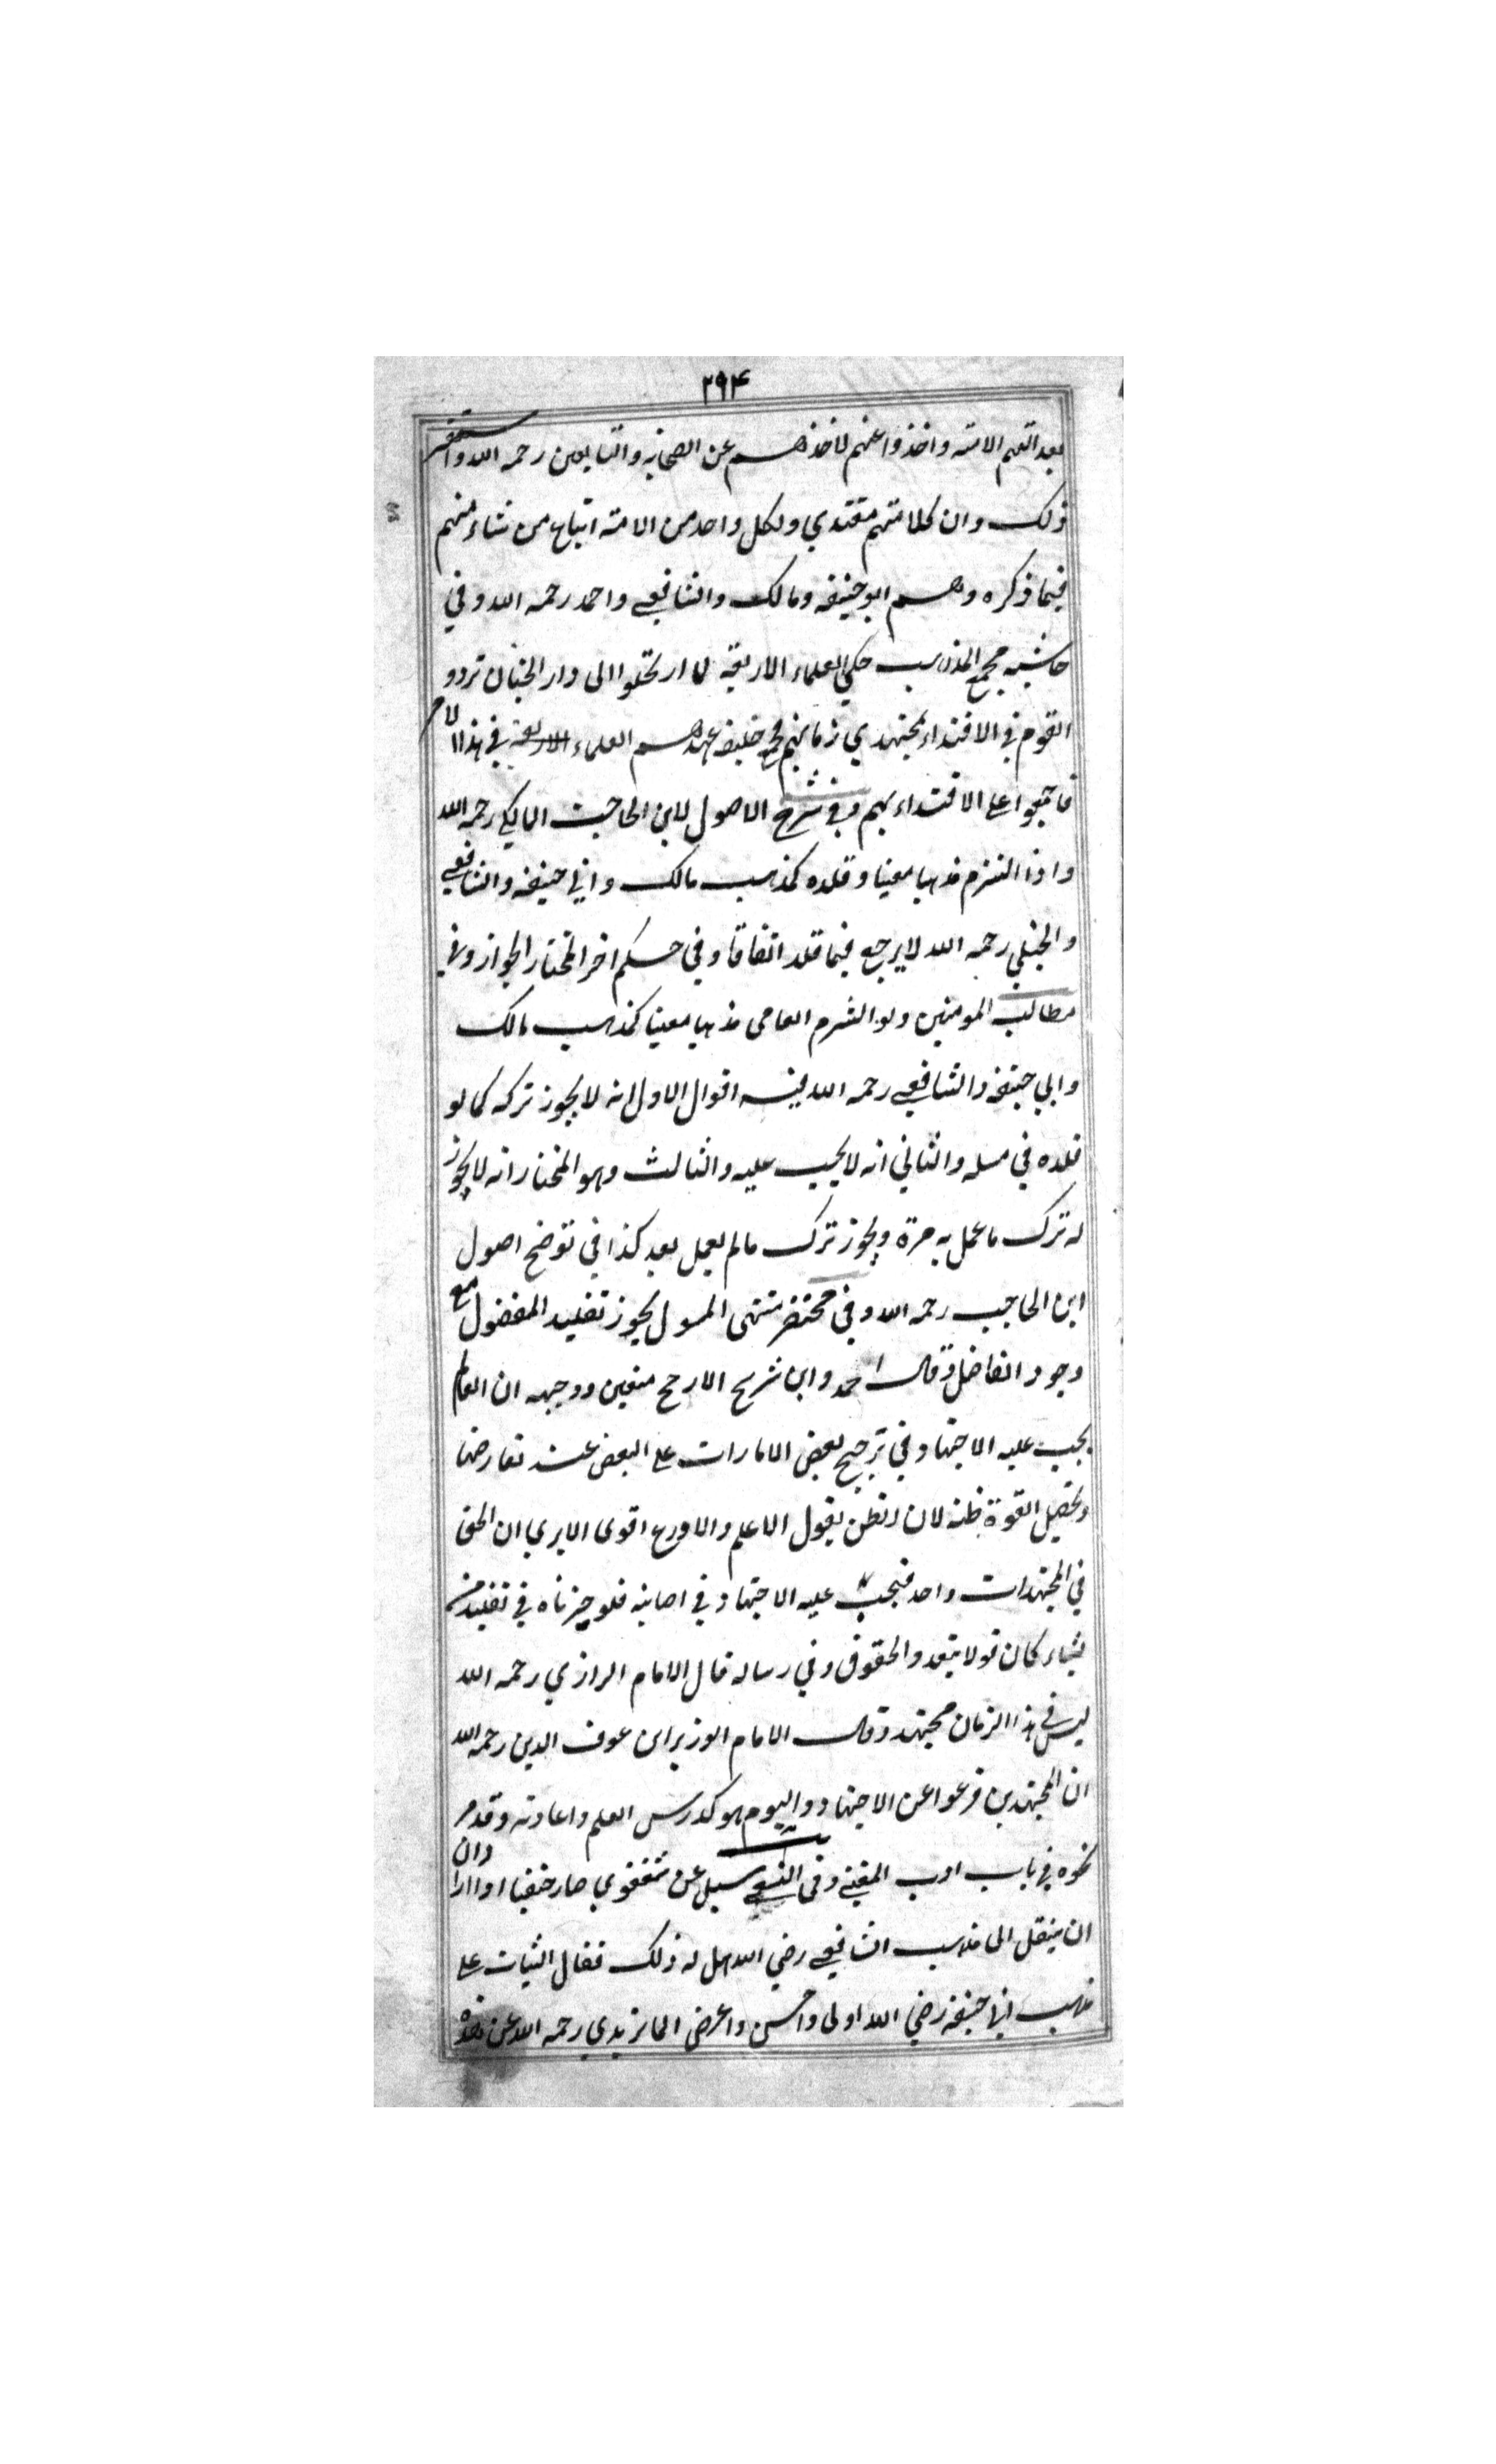 ٢٩٤
واخذوا عنهم لاخذهم عن الصحابة والتابعين رحمه الله واستقر
ذلك وان كلا منهم مقتدي ولكل واحد من الامة اتباع من شاء منهم
فيما ذكره وهم ابو حنيفه ومالك والشافعي واحمد رحمه الله وفي
حاشيه مجمع المذاهب حكي العلماء الاربعة لما ارتحلوا الى دار الجنان تردد
القوم في الاقتداء بمجتهدي زمانهم خليفه عهدهم العلماء في هذا
فاجمعوا على الاقتداء بهم وفي شرح الاصول لابن الحاجب المالكي رحمه الله
واذا التزم مذهبا معينا وقلده كمذهب مالك وابي حنيفه والشافعي
والحنبلي رحمه الله لا يرجع فيما قلد اتفاقا وفي حكم اخر المختار الجواز وفي
مطالب المومنين ولو التزم العامى مذهبا معينا كمذهب مالك
وابي حنيفه والشافعي رحمه الله فيه اقوال الاول انه لا يجوز تركه كما لو
قلده في مسله والثاني انه لا يجب عليه والثالث وهو المختار انه لا يجوز
له ترك ما عمل به مرة ويجوز ترك ما لم يعمل بعد كذا في توضح اصول
ابن الحاجب رحمه الله وفي مختصر منتهى السول يجوز تقليد المفضول مع
وجود الفاضل وقال احمد وابن شريح الارجح متعين ووجهه ان العالم
يجب عليه الاجتهاد في ترجيح بعض الامارات على البعض عند تعارضها
وتحصيل القوة ظنه لان الظن بقول الاعلم والاورع اقوى الا يري ان الحق
في المجتهدات واحد فيجب عليه الاجتهاد في اصابته فلو خيرناه في تقليد من
يشاء كان قولا بتعدد الحقوق وفي رساله قال الامام الرازي رحمه الله
ليس في هذا الزمان مجتهد وقال الامام الوزير ابن عوف الدين رحمه الله
ان المجتهدين فرغوا عن الاجتهاد واليوم هو كدرس العلم واعادته وقد مر
نحوه في باب ادب المفتي وفى النسفي سيل عن شفعوي صار حنفيا وان اراد
ان ينتقل الى مذهب الشافعي رضي الله هل له ذلك فقال الثبات على
مذهب ابي حنيفه رضي الله اولى واحسن واعرض الماتريدي رحمه الله عن هذه